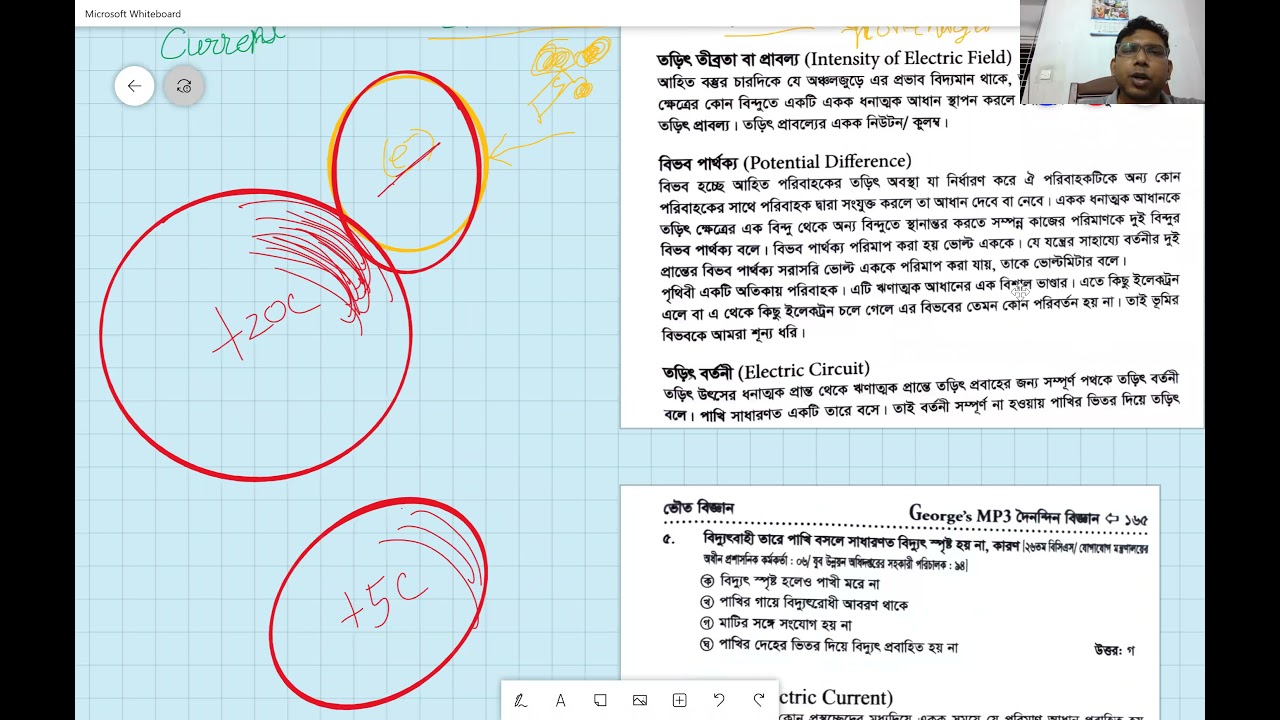 Microsoft Whiteboard
Current
তড়িৎ তীব্রতা বা প্রাবল্য (Intensity of Electric Field)
আহিত বস্তুর চারদিকে যে অঞ্চলজুড়ে এর প্রভাব বিদ্যমান থাকে,
ক্ষেত্রের কোন বিন্দুতে একটি একক ধনাত্মক আধান স্থাপন করলে
তড়িৎ প্রাবল্য। তড়িৎ প্রাবল্যের একক নিউটন/ কুলম্ব।
বিভব পার্থক্য (Potential Difference)
বিভব হচ্ছে আহিত পরিবাহকের তড়িৎ অবস্থা যা নির্ধারণ করে ঐ পরিবাহকটিকে অন্য কোন
পরিবাহকের সাথে পরিবাহক দ্বারা সংযুক্ত করলে তা আধান দেবে বা নেবে। একক ধনাত্মক আধানকে
তড়িৎ ক্ষেত্রের এক বিন্দু থেকে অন্য বিন্দুতে স্থানান্তর করতে সম্পন্ন কাজের পরিমাণকে দুই বিন্দুর
বিভব পার্থক্য বলে। বিভব পার্থক্য পরিমাপ করা হয় ভোল্ট এককে। যে যন্ত্রের সাহায্যে বর্তনীর দুই
প্রান্তের বিভব পার্থক্য সরাসরি ভোল্ট এককে পরিমাপ করা যায়, তাকে ভোল্টমিটার বলে।
পৃথিবী একটি অতিকায় পরিবাহক। এটি ঋণাত্মক আধানের এক বিশাল ভাণ্ডার। এতে কিছু ইলেকট্রন
এলে বা এ থেকে কিছু ইলেকট্রন চলে গেলে এর বিভবের তেমন কোন পরিবর্তন হয় না। তাই ভূমির
বিভবকে আমরা শূন্য ধরি।
তড়িৎ বর্তনী (Electric Circuit)
তড়িৎ উৎসের ধনাত্মক প্রান্ত থেকে ঋণাত্মক প্রান্তে তড়িৎ প্রবাহের জন্য সম্পূর্ণ পথকে তড়িৎ বর্তনী
বলে। পাখি সাধারণত একটি তারে বসে। তাই বর্তনী সম্পূর্ণ না হওয়ায় পাখির ভিতর দিয়ে তড়িৎ
+20C
+5C
ভৌত বিজ্ঞান
George's MP3 দৈনন্দিন বিজ্ঞান ⇦ ১৬৫
৫. বিদ্যুৎবাহী তারে পাখি বসলে সাধারণত বিদ্যুৎ স্পৃষ্ট হয় না, কারণ [২৬তম বিসিএস/ যোগাযোগ মন্ত্রণালয়ের
অধীন প্রশাসনিক কর্মকর্তা : ০৬/ যুব উন্নয়ন অধিদপ্তরের সহকারী পরিচালক : ৯৪]
ক বিদ্যুৎ স্পৃষ্ট হলেও পাখী মরে না
খ পাখির গায়ে বিদ্যুৎরোধী আবরণ থাকে
গ মাটির সঙ্গে সংযোগ হয় না
ঘ পাখির দেহের ভিতর দিয়ে বিদ্যুৎ প্রবাহিত হয় না
উত্তর: গ
ctric Current)